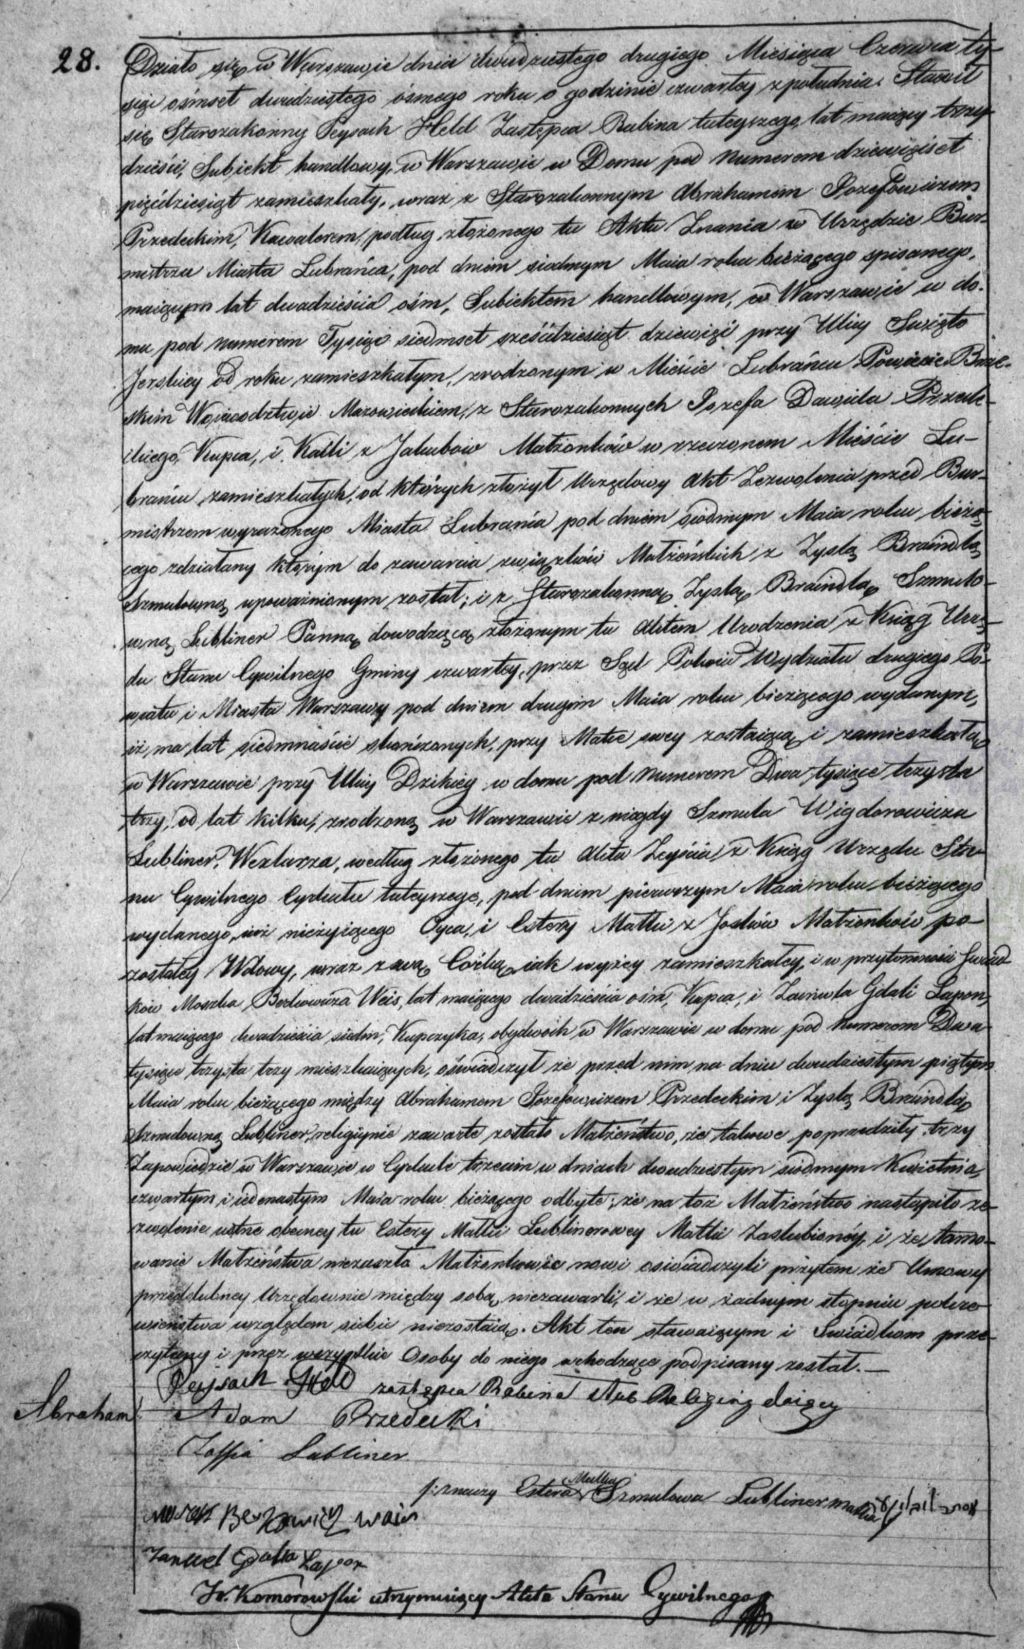 28. Działo się w Warszawie dnia dwudziestego drugiego Miesiąca Czerwca ty-
siąc ośmset dwudziestego ósmego roku o godzinie czwartey z południa. Stawił
się Starozakonny Peysach Held Zastępca Rabina tuteyszego, lat maiący trzy-
dzieści, Subiekt handlowy, w Warszawie w Domu pod Numerem dziewięćset
pięćdziesiąt zamieszkały, wraz z Starozakonnym Abrahamem Józefowiczem
Przedeckim, Kawalerem, podług złożonego tu Aktu Znania w Urzędzie Bur-
mistrza Miasta Lubrańca, pod dniem siódmym Maia roku bieżącego spisanego,
maiącym lat dwadzieścia ośm, Subiektem handlowym, w Warszawie w do-
mu pod numerem Tysiąc siedmset sześćdziesiąt dziewięć przy Ulicy Święto
Jerskiey od roku zamieszkałym, zrodzonym w Mieście Lubrańcu Powiecie Brze-
skim Województwie Mazowieckiem, z Starozakonnych Józefa Dawida Przede-
ckiego, Kupca, i Kaili z Jakubów Małżonków w rzeczonem Mieście Lu-
brańcu zamieszkałych, od których złożył Urzędowy Akt Zezwolenia przed Bur-
mistrzem wyrażonego Miasta Lubrańca pod dniem siódmym Maia roku bieżą-
cego zdziałany którym do zawarcia związków Małżeńskich z Zyslą Braindlą
Szmulowną upoważnionym został; i z Starozakonną Zyslą Braindlą Szmulo-
wną Lubliner Panną dowodzącą złożonym tu Aktem Urodzenia z Księg Urzę-
du Stanu Cywilnego Gminy czwartey, przez Sąd Policii Wydziału drugiego Po-
wiatu i Miasta Warszawy pod dniem drugim Maia roku bieżącego wydanym,
iż ma lat siedmnaście skończonych, przy Matce swey zostaiącą i zamieszkałą
w Warszawie przy Ulicy Dzikiey w domu pod Numerem Dwa tysiące trzysta
trzy, od lat kilku, zrodzoną w Warszawie z niegdy Szmula Wigdorowicza
Lubliner, Wexlarza, według złożonego tu Aktu Zeyścia z Księg Urzędu Sta-
nu Cywilnego Cyrkułu tuteyszego, pod dniem pierwszym Maia roku bieżącego
wydanego, iuż nieżyiącego Oyca, i Estery Małki z Josków Małżonków po-
zostałey Wdowy, wraz z swą Córką iak wyżey zamieszkałey, i w przytomności Świad-
ków Moszka Berkowicza Weis, lat maiącego dwadzieścia ośm, Kupca, i Zanwla Gdali Lapon,
lat maiącego dwadzieścia siedm, Kupczyka, obydwóch w Warszawie w domu pod Numerem Dwa
tysiące trzysta trzy mieszkaiących, oświadczył że przed nim na dniu dwudziestym piątym
Maia roku bieżącego między Abrahamem Józefowiczem Przedeckim i Zyslą Braindlą
Szmulowną Lubliner, religiynie zawarte zostało Małżeństwo, że takowe poprzedziły trzy
Zapowiedzie w Warszawie w Cyrkule trzecim w dniach dwudziestym siódmym Kwietnia,
czwartym i iedenastym Maia roku bieżącego odbyte; że na toż Małżeństwo nastąpiło ze-
zwolenie ustne obecney tu Estery Małki Lublinerowey Matki Zaślubionéy, i że tamo-
wanie Małżeństwa niezaszło Małżonkowie nowi oświadczyli przytem że Umowy
przedślubney Urzędownie między sobą niezawarli, i że w żadnym stopniu pokre-
wieństwa względem siebie niezostaią. Akt ten stawaiącym i Świadkom prze-
czytany i przez wszystkie Osoby do niego wchodzące podpisany został.—
Peysach Held zastępca Rabina Szlub Religijnij daiący
Abraham Adam Przedecki
Zoffia Lubliner
Estera Małka Szmulowa Lubliner matka
Moszek Berkowicz Wais
Zanwel Gdalia Lapon
W. Komorowski utrzymuiący Akta Stanu Cywilnego